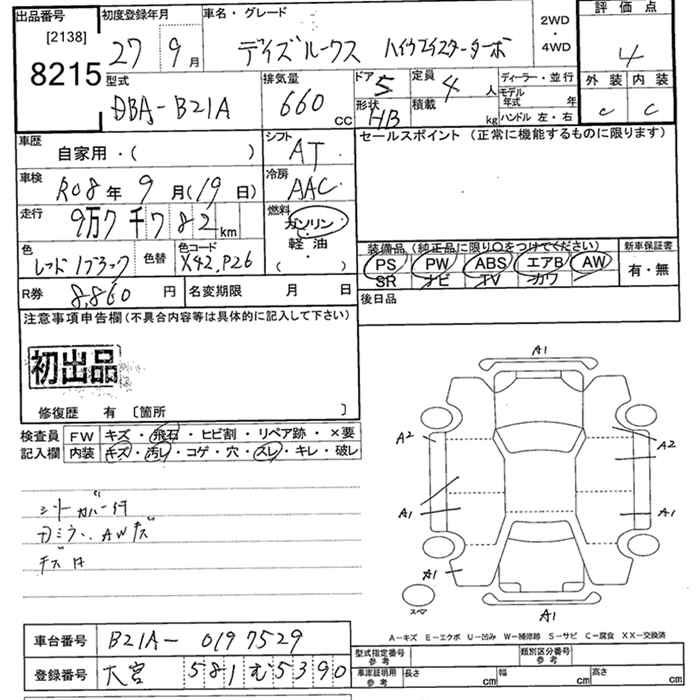 出品番号 初度登録年月 車名・グレード 2WD ・ 4WD 評価点
[2138]
8215 27 9月 デイズルークス ハイウェイスターターボ 4
型式 排気量 ドア 5 定員 4人 ディーラー・並行 外装 内装
DBA-B21A 660 CC 形状 HB 積載 kg モデル年式 年 C C
ハンドル 左・右
車歴 シフト セールスポイント (正常に機能するものに限ります)
自家用・( ) AT
車検 冷房
R08年 9月(19日) AAC
走行 燃料
9万7千782km ガソリン
色 色替 色コード 軽油
レッド/ブラック X42,P26 ( )
装備品 (純正品に限り○をつけてください) 新車保証書
PS PW ABS エアB AW 有・無
SR ナビ TV カワ
R券 8,860円 名変期限 月 日
後日品
注意事項申告欄(不具合内容等は具体的に記入して下さい)
初出品
修復歴 有 〔箇所 〕
検査員 FW キズ・飛石・ヒビ割・リペア跡・×要
記入欄 内装 キズ・汚レ・コゲ・穴・スレ・キレ・破レ
シートカバー付
AWキズ
A1
A2 A2
A1 A1
A1
スペア
A1
A-キズ E-エクボ U-凹み W-補修跡 S-サビ C-腐食 XX-交換済
車台番号 B21A-0197529
登録番号 大宮 581む5390
型式指定番号 参考 類別区分番号 参考
車庫証明用 参考 長さ cm 幅 cm 高さ cm